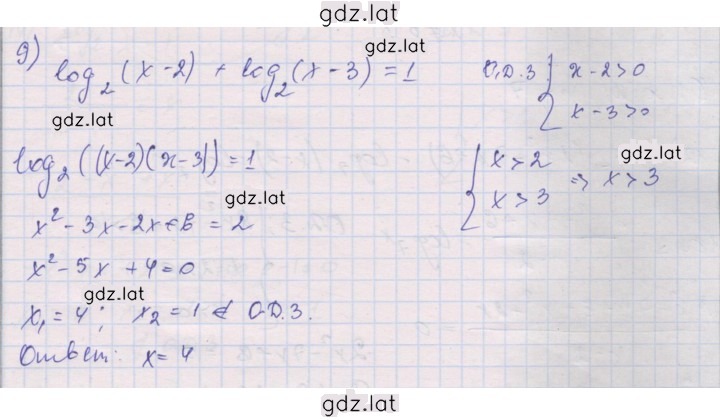 gdz.lat
9)
gdz.lat
log₂(x-2) + log₂(x-3) = 1
О.Д.З { x-2>0
x-3>0
gdz.lat
log₂((x-2)(x-3)) = 1
{ x>2
x>3 ⇒ x>3
gdz.lat
gdz.lat
x²-3x-2x+6 = 2
x²-5x+4=0
gdz.lat
x₁=4; x₂=1 ∉ О.Д.З.
Ответ: x=4
gdz.lat